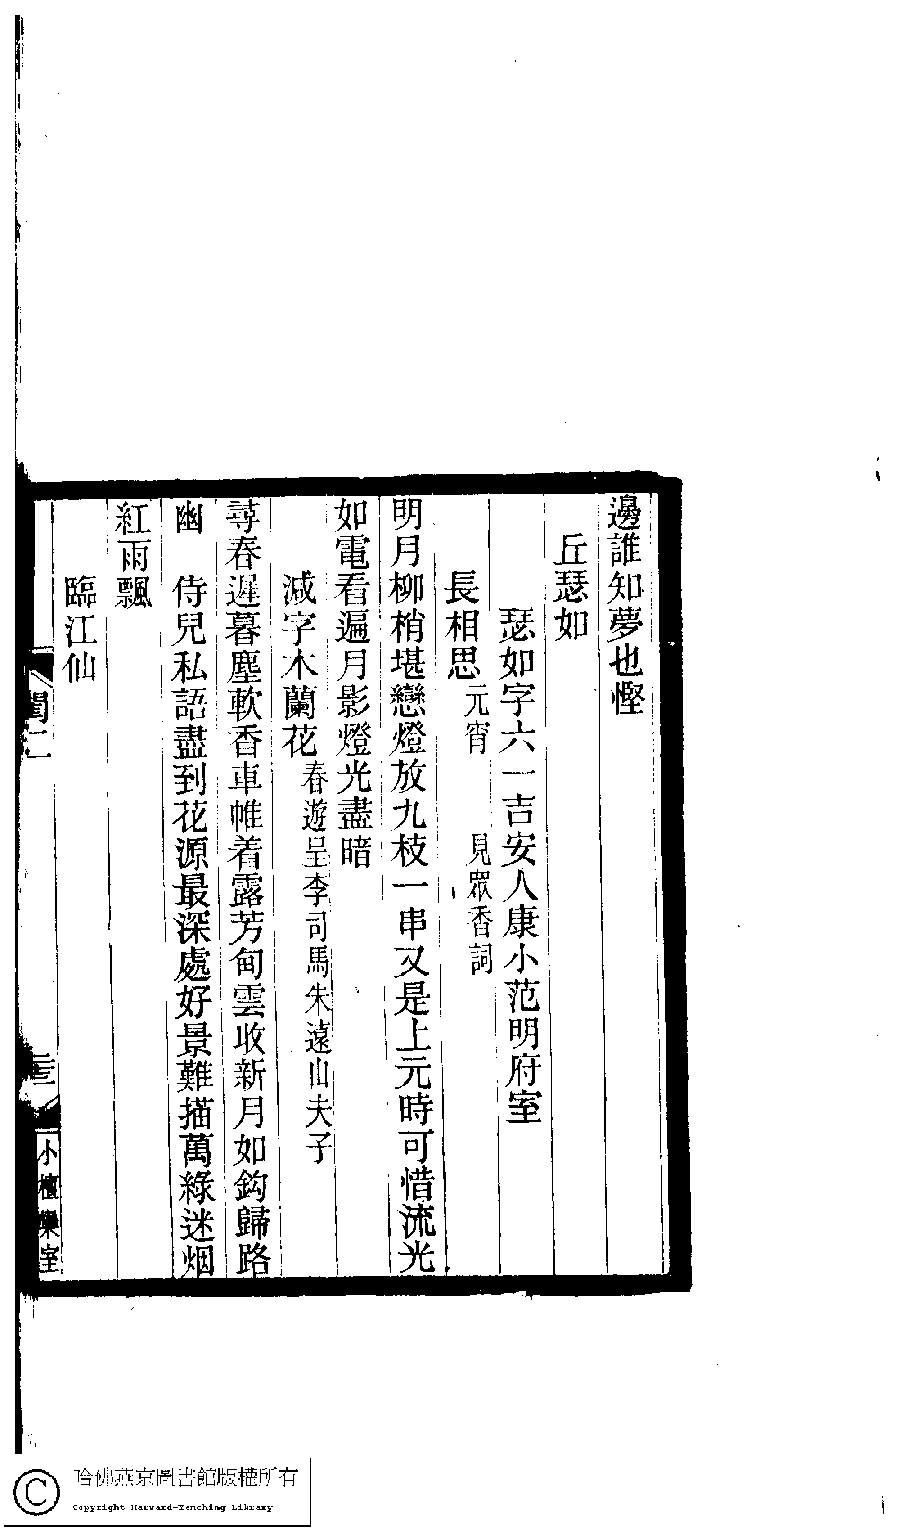 邊誰知夢也慳
丘瑟如
瑟如字六一吉安人康小范明府室
長相思 元宵 見眾香詞
明月柳梢堪戀燈放九枝一串又是上元時可惜流光
如電看遍月影燈光盡暗
減字木蘭花 春遊呈李司馬朱遠山夫子
尋春遲暮塵軟香車帷着露芳甸雲收新月如鈎歸路
幽 侍兒私語盡到花源最深處好景難描萬綠迷烟
紅雨飄
臨江仙
閨二
三
小檀欒室
哈佛燕京圖書館版權所有
Copyright Harvard-Yenching Library